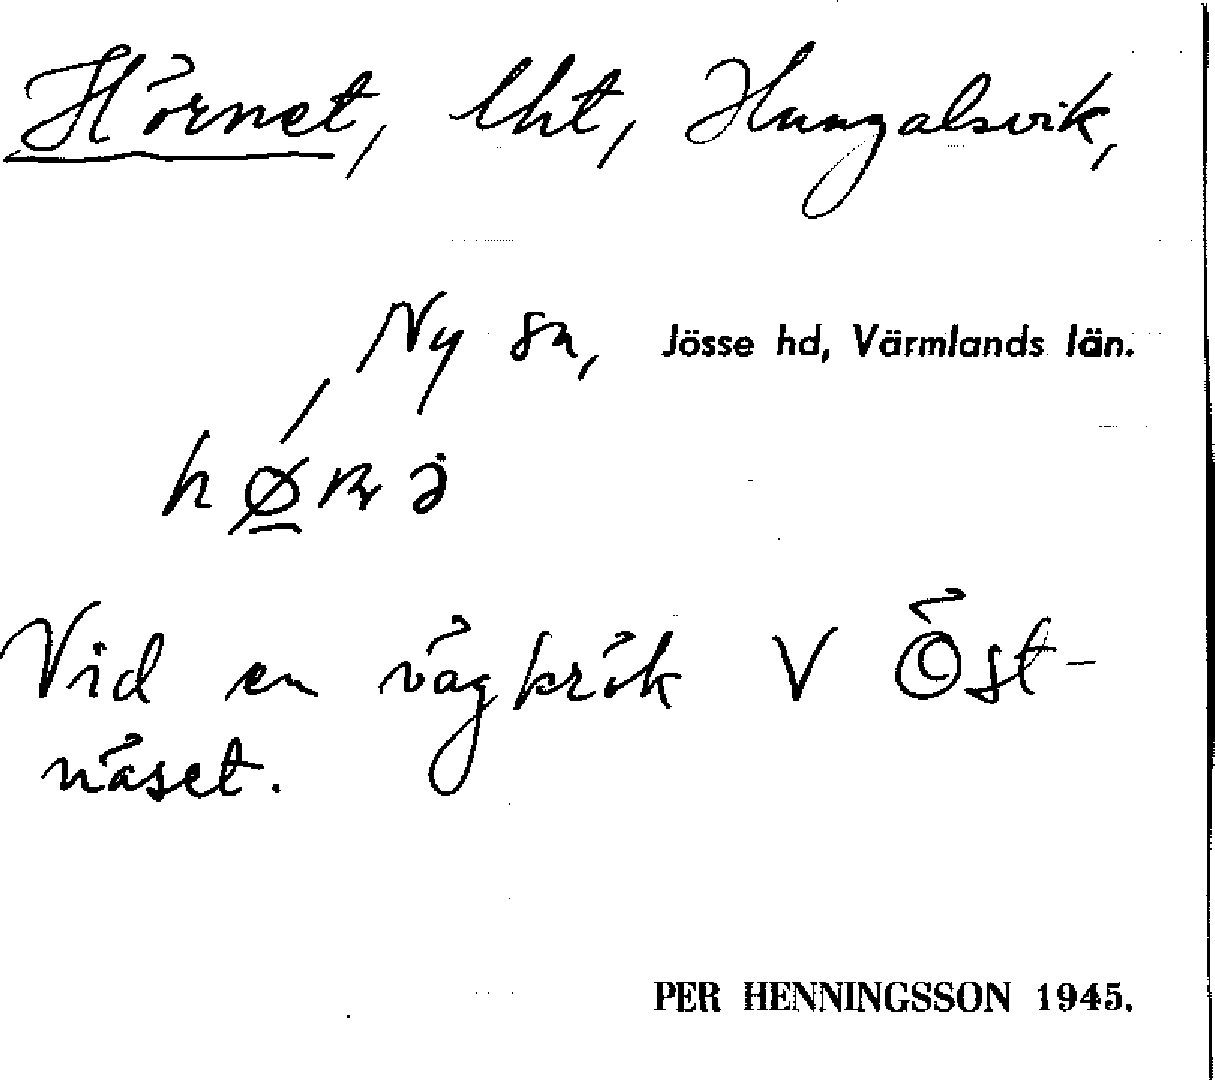 Hörnet, lht, Hungalsvik,
Ny sn, Jösse hd, Värmlands län.
Vid en vägkrök V Öst-
näset.
PER HENNINGSSON 1945.